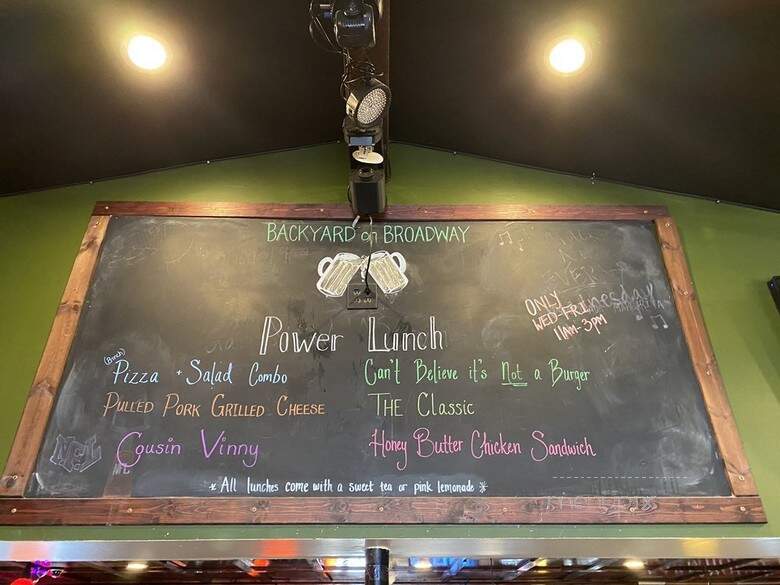 BACKYARD on BROADWAY
ONLY
WED-FRI
11AM-3PM
Power Lunch
(Bunch)
Pizza + Salad Combo
PULLED PORK GRILLED CHEESE
Cousin Vinny
Can't Believe it's Not a Burger
THE Classic
Honey Butter Chicken Sandwich
NFL
* All lunches come with a sweet tea or pink lemonade *